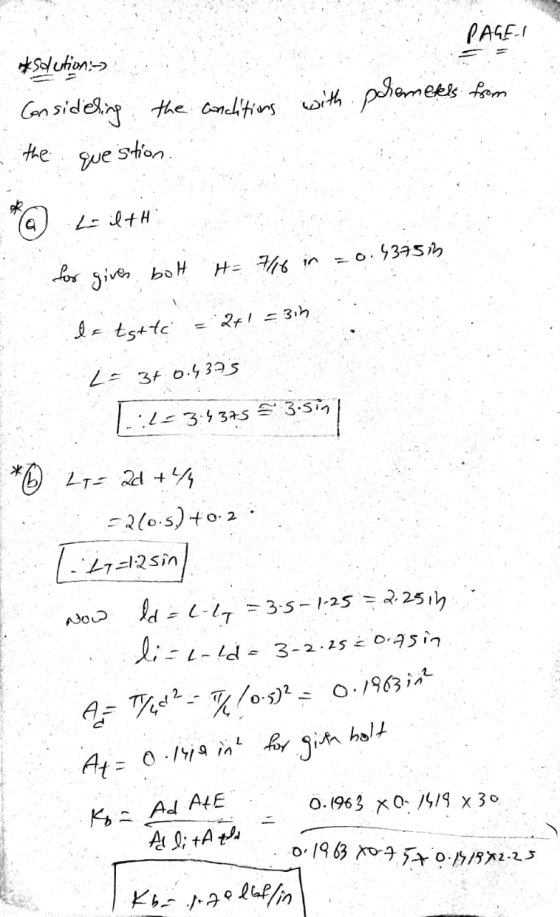 PAGE-1
*Solution:→
Considering the conditions with parameters from
the question.
* (a) L = l+H
for given bolt H = 7/16 in = 0.4375 in
l = ts+tc = 2+1 = 3in
L = 3+ 0.4375
∴ L = 3.4375 ≅ 3.5in
* (b) LT = 2d + 1/4
= 2(0.5) + 0.2
∴ LT = 1.25in
Now ld = L-LT = 3.5-1.25 = 2.25in
li = L-Ld = 3-2.25 = 0.75in
Ad = π/4 d² = π/4 (0.5)² = 0.1963 in²
At = 0.1419 in² for given bolt
Kb = Ad At E / Ad li + At ld = 0.1963 x 0.1419 x 30 / 0.1963 x 0.75 + 0.1419 x 2.25
Kb = lbf/in